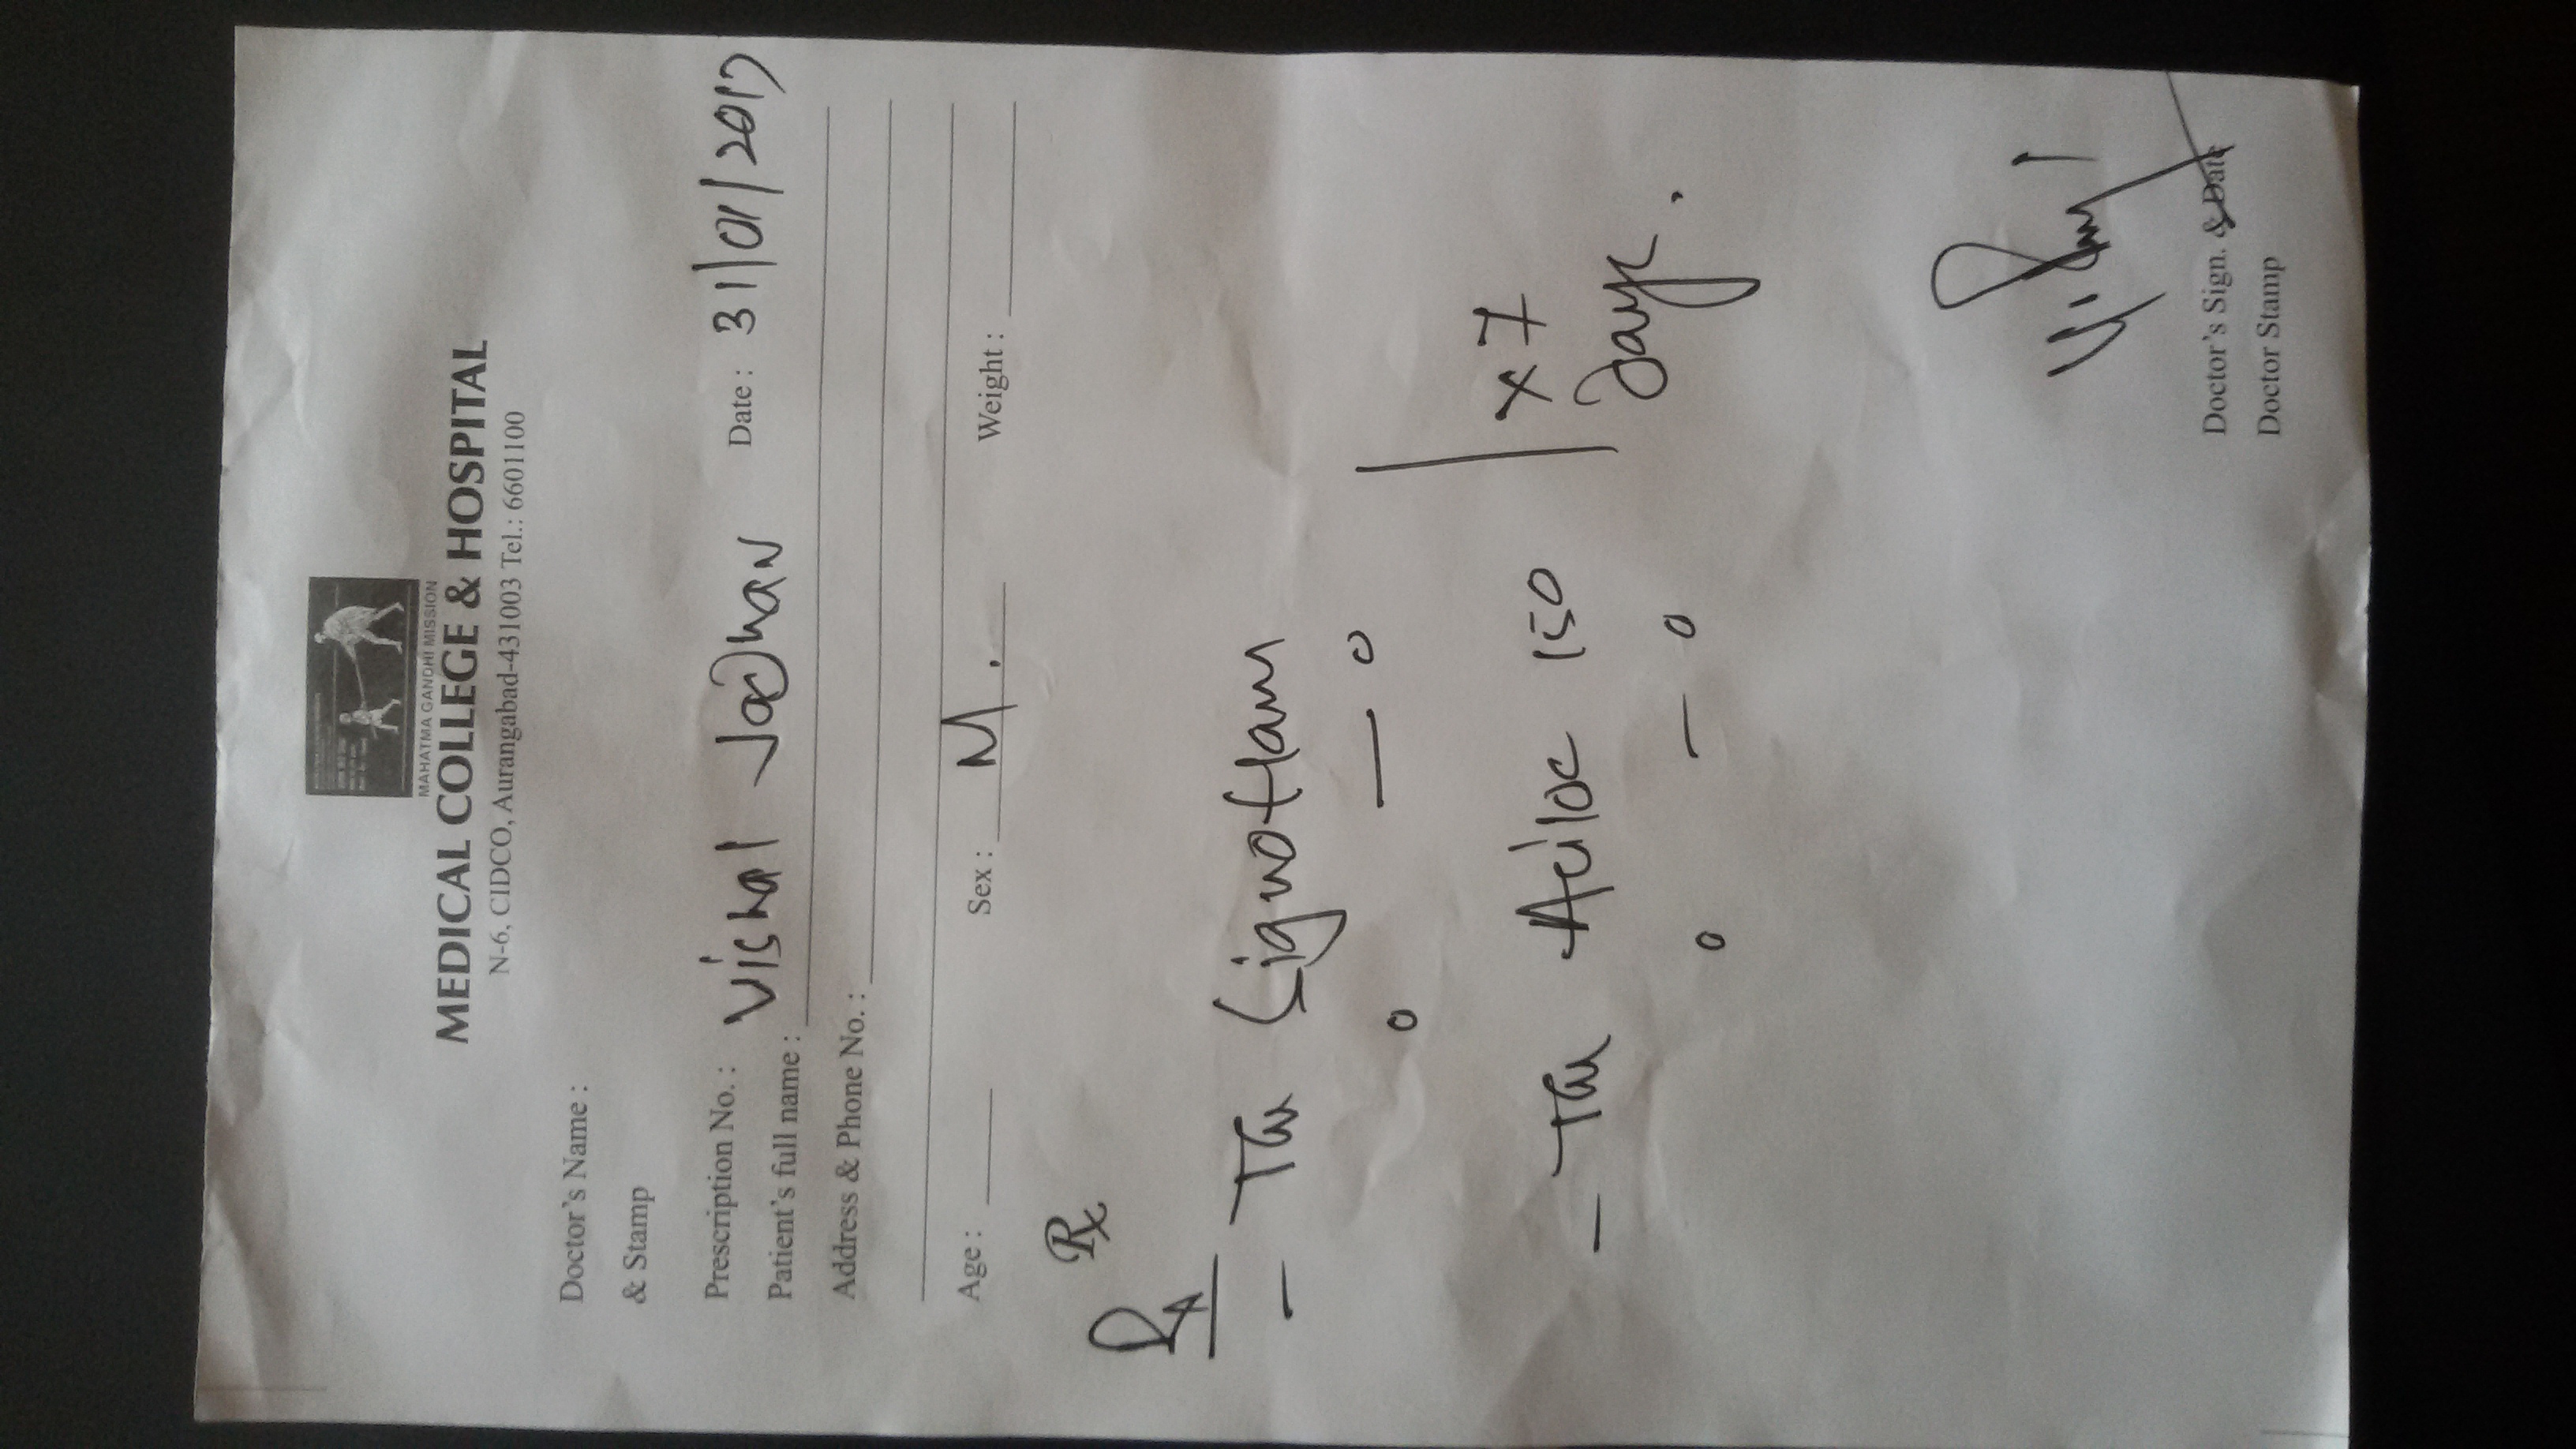 MAHATMA GANDHI MISSION
MEDICAL COLLEGE & HOSPITAL
N-6, CIDCO, Aurangabad-431003 Tel.: 6601100
Doctor's Name :
& Stamp
Prescription No. :
Date : 31/01/2017
Patient's full name : Vishal Jadhav
Address & Phone No. :
Age : Sex : M. Weight :
Rx
Rx
- Tab Signoflam
o — o
- Tab Aciloc 150
o — o
x 7
Days.
Doctor's Sign. & Date
Doctor Stamp